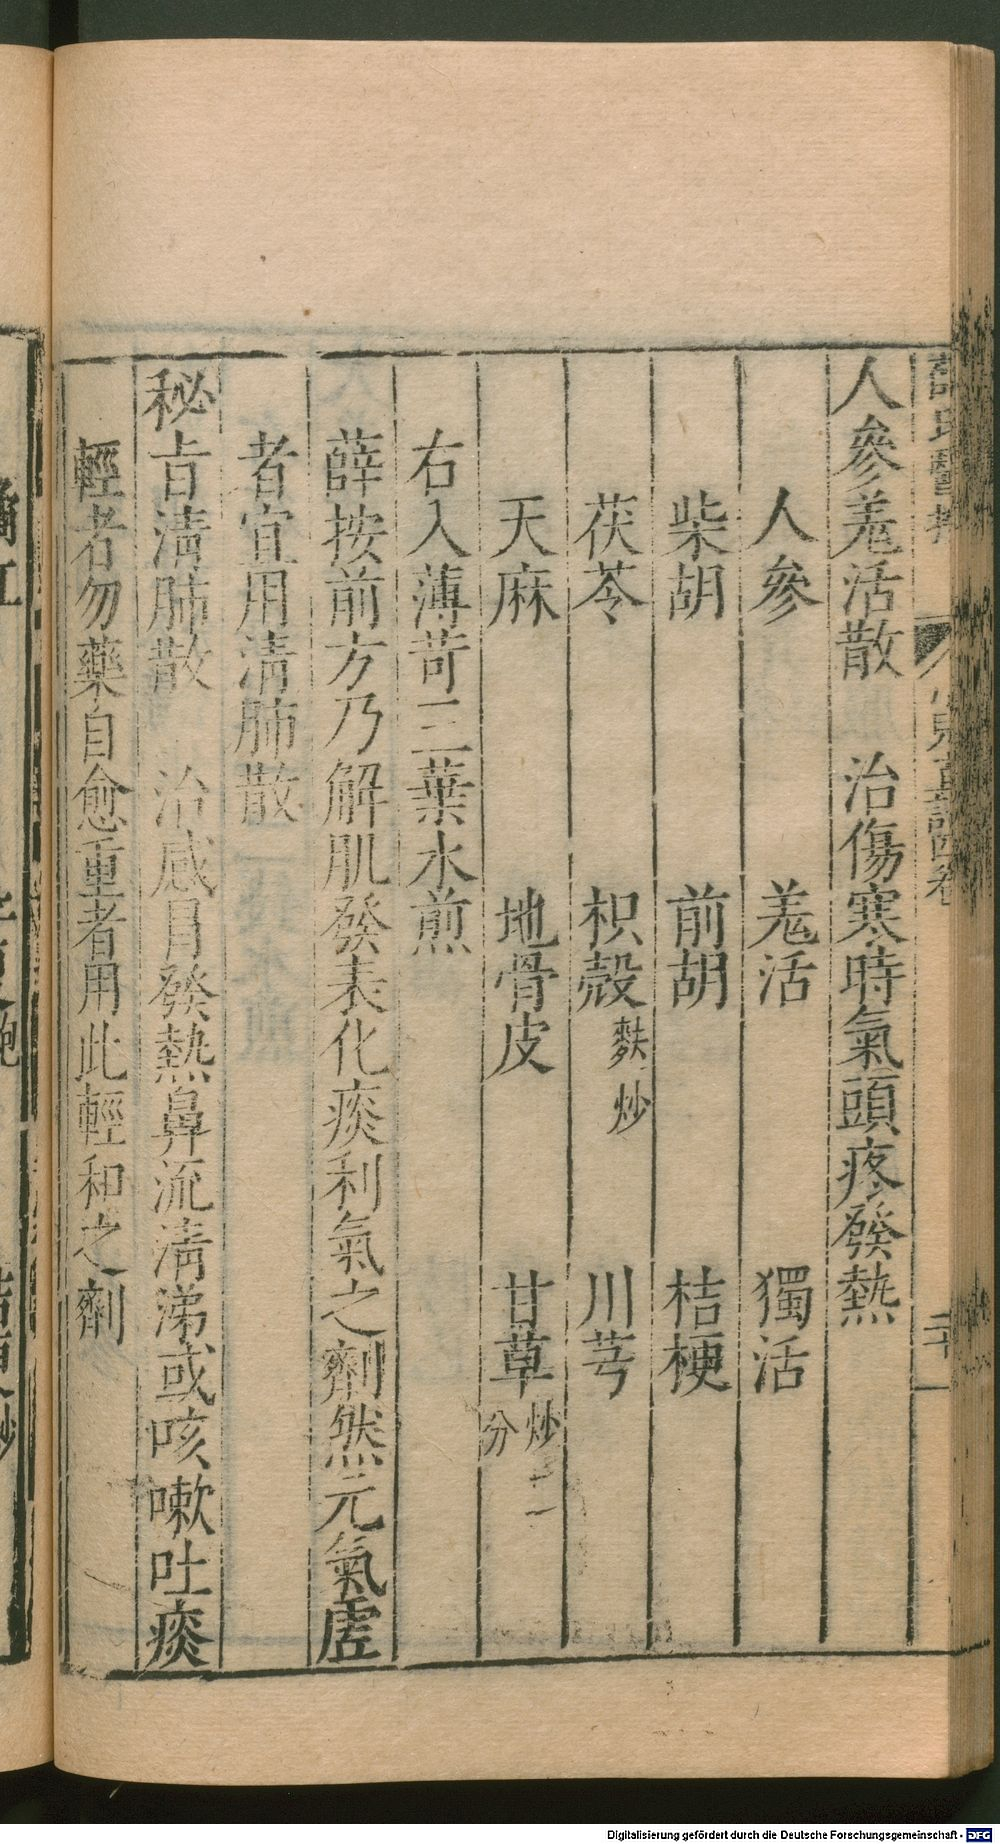 人參羗活散　治傷寒時氣頭疼發熱
人參　羗活　獨活
柴胡　前胡　桔梗
茯苓　枳殼麩炒　川芎
天麻　地骨皮　甘草炒二分
右入薄苛三葉水煎
薛按前方乃解肌發表化痰利氣之劑然元氣虗
者宜用清肺散
秘旨清肺散　治感冐發熱鼻流清涕或咳嗽吐痰
輕者勿藥自愈重者用此輕和之劑
Digitalisierung gefördert durch die Deutsche Forschungsgemeinschaft - DFG